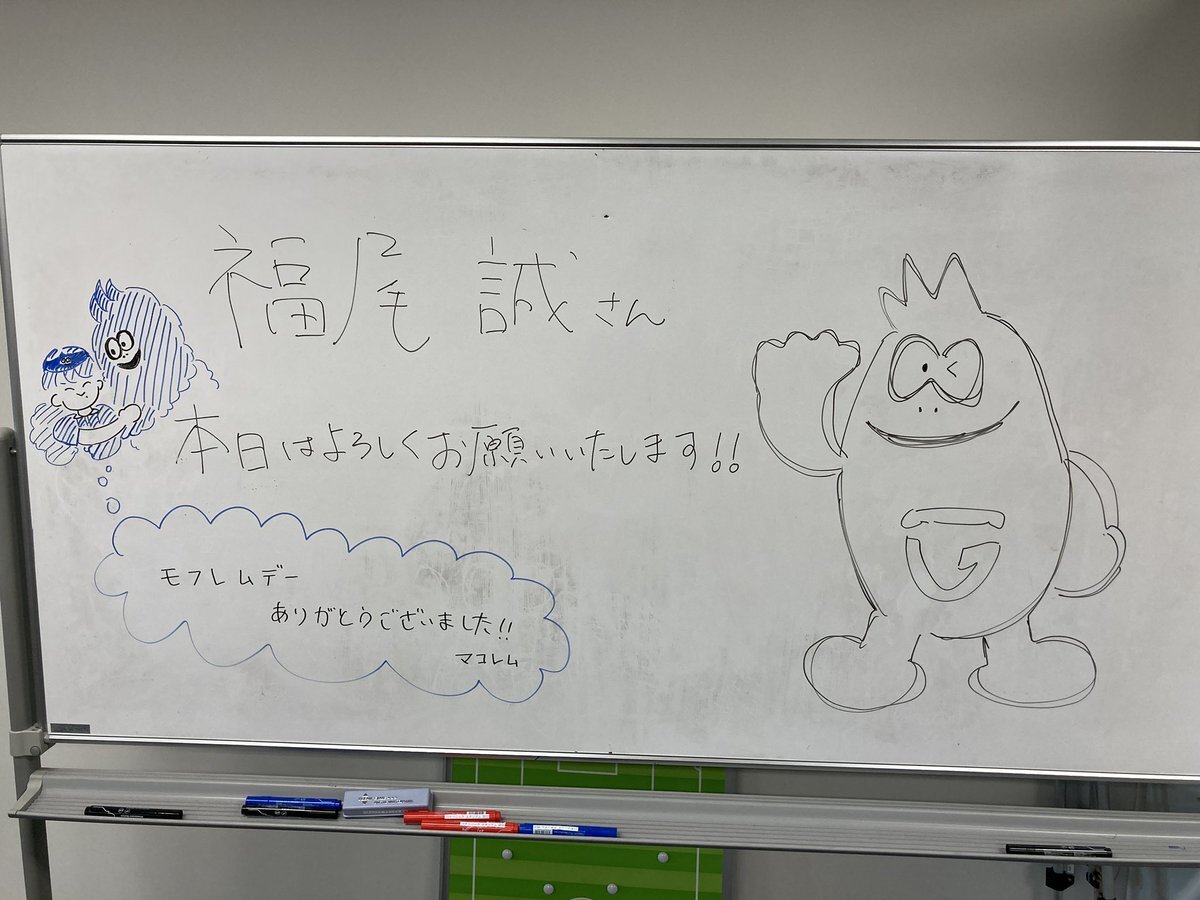 福尾 誠さん
本日はよろしくお願いいたします!!
モフレムデー
ありがとうございました!!
マコレム
G